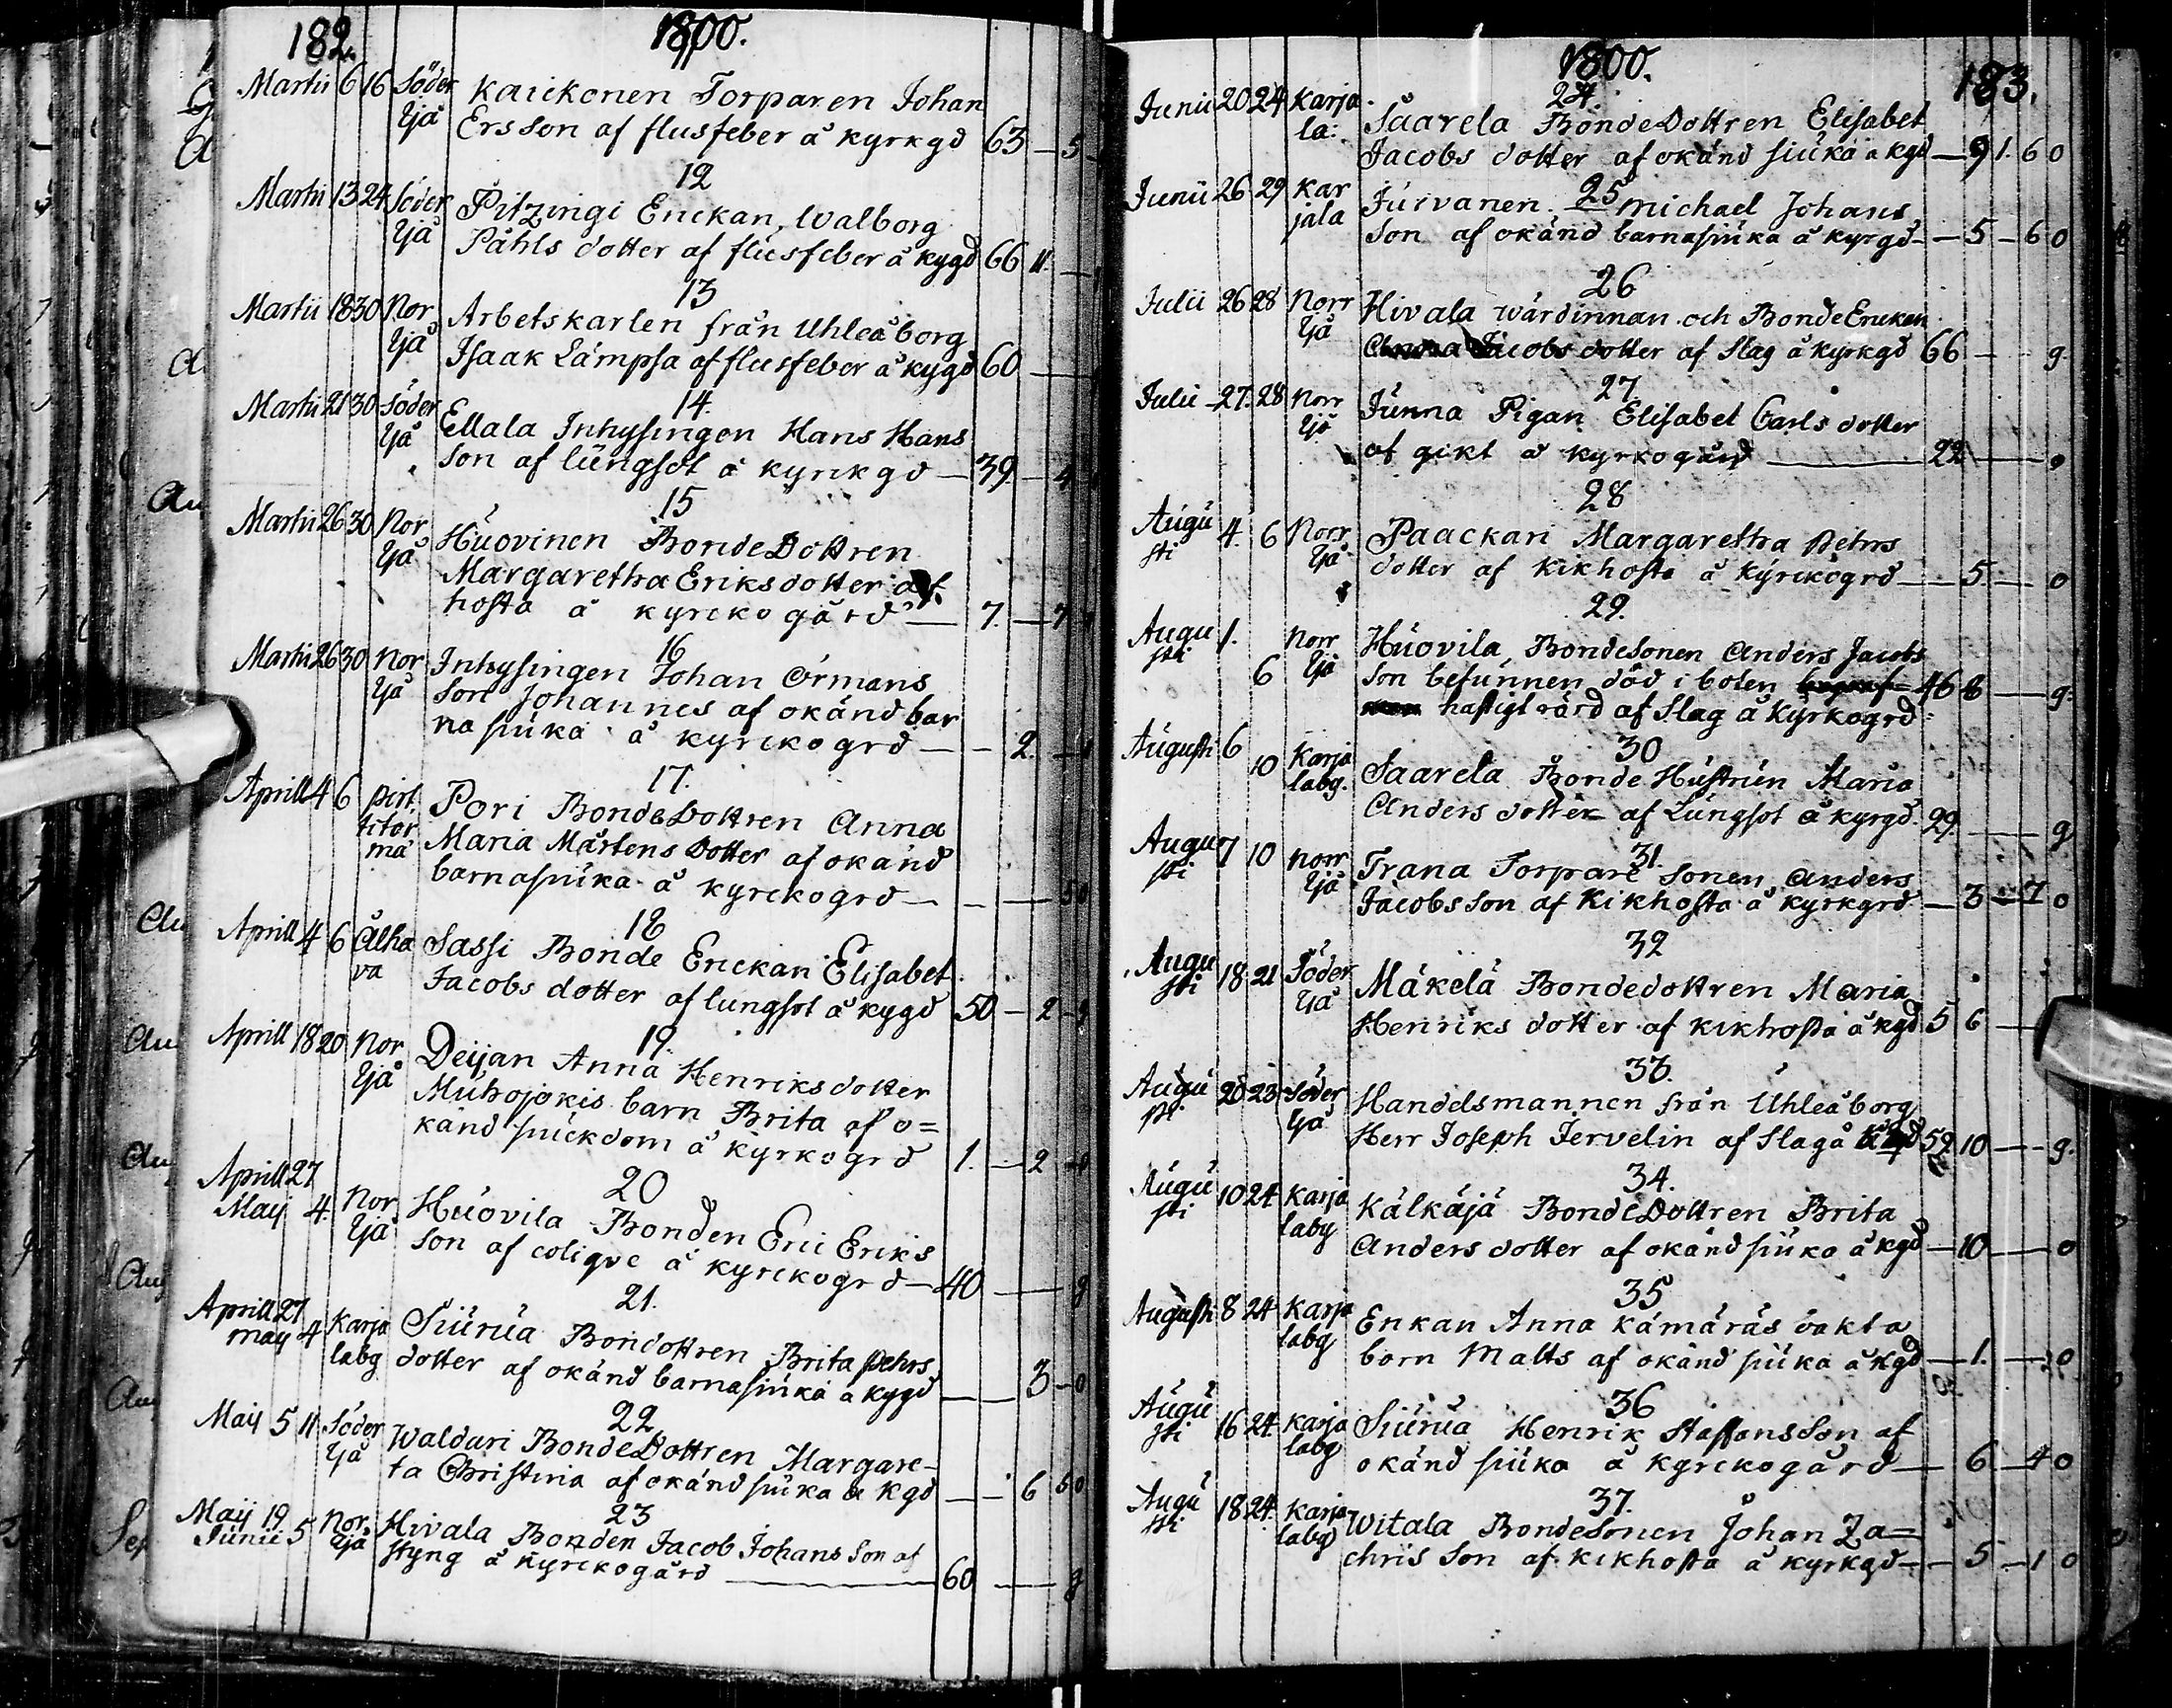 182. 1800.
11
Martii 6 16 Söder Kaickonen Torparen Johan
Ijå Ersson af flusfeber å kyrkgd 63 — 5
12
Martii 13 24 Söder Pitzingi Enckan, Walborg
Ijå Påhls dotter af flusfeber å kygd 66 11. —
13
Martii 18 30 Nor Arbetskarlen från Uhleåborg
Ijå Isaak Lämpsa af flusfeber å kygd 60 —
14.
Martii 21 30 Söder Ellala Inhysingen Hans Hans
Ijå son af lungsot å kyrckgd — 39. — 4
15
Martii 26 30 Nor Huovinen BondeDottren
Ijå Margaretha Eriksdotter af
hosta å kyrckogård — 7. — 7
16
Martii 26 30 Nor Inhysingen Johan Örmans
Ijå son Johannes af okänd bar
nasiuka å kyrckogrd — — 2. —
17.
Aprill 4 6 Pirt Pori BondeDottren Anna
titör Maria Mårtens Dotter af okänd
mä barnasiuka å kyrckogrd — — — 50
18
Aprill 4 6 Ålha Sassi Bonde Enckan Elisabet
va Jacobs dotter af lungsot å kygd 50 — 2 — g
19.
Aprill 18 20 Nor Deijan Anna Henriksdotter
Ijå Muhojokis barn Brita af o=
känd siuckdom å kyrkogrd 1. — 2
20
Aprill 27
Maij 4. Nor Huovila Bonden Eric Eriks
Ijå son af colique å kyrckogrd — 40 — g
21.
Aprill 27 Karja Siurua Bondottren Brita Pehrs
may 4 labg dotter af okänd barnasiuka å kygd — 3 — 0
22
Maij 5 11 Söder Waldari BondeDottren Margare-
Ijå ta Christina af okänd siuka å kgd — — 6 60
23
Maij 19 Nor Hivala Bonden Jacob Johans Son af
Junii 5 Ijå styng å kyrckogård — 60 — g
1800. 183.
24.
Junii 20 24 Karja Saarela BondeDottren Elisabet
la: Jacobs dotter af okänd siuka å kgd — 9 1. 6 0
25
Junii 26 29 Kar Jurvanen michael Johans
jala son af okänd barnasiuka å kyrgd — — 5 — 6 0
26
Julii 26 28 Norr Hivala wärdinnan och BondeEnckan
Ijå Anna Jacobs dotter af Slag å kyrkgd 66 — — g.
27.
Julii — 27. 28 Norr Junna Pigan Elisabet Carls dotter
Ijå af gikt å kyrkogård — 22 — 0
28
Augu 4. 6 Norr Paackari Margaretha Pehrs
sti Ijå dotter af Kikhosta å kyrckogrd — 5 — 0
29.
Augu 1. Norr Huovila Bondesonen Anders Jacobs
sti 6 Ijå son befunnen död i boten 46 8 — g.
hastigt rörd af Slag å Kyrkogrd
30
Augusti 6 10 Karja Saarela Bonde Hustrun Maria
labg. Anders dotter af Lungsot å kyrgd. 29 — g
31.
Augu 7 10 norr Trana Torpare Sonen Anders
sti Ijå Jacobsson af Kikhosta å kyrkgrd — 3 — 7 0
32
Augu 18 21 Söder Mäkelä Bondedottren Maria
sti Ijå Henriks dotter af kikhosta å kgd 5 6 —
33.
Augu 20 23 Söder Handelsmannen från Uhleåborg
sti Ijå Herr Joseph Jervelin af Slag å 59 10 — g.
34.
Augu 10 24 Karja Kälkäjä BondeDottren Brita
sti labg Anders dotter af okänd siuka å kgd — 10 — 0
35
Augusti 8 24 Karja Enkan Anna Kämäräs oäkta
labg barn Malts af okänd siuka å kgd — 1. — 0
36
Augu 16 24 Karja Siurua Henrik Staffansson af
sti labg okänd siuka å kyrckogård — 6 — 4 0
37.
Augu 18 24. Karja Witala Bondesonen Johan Za=
sti labg chris son af Kikhosta å kyrkgd — — 5 — 1 0